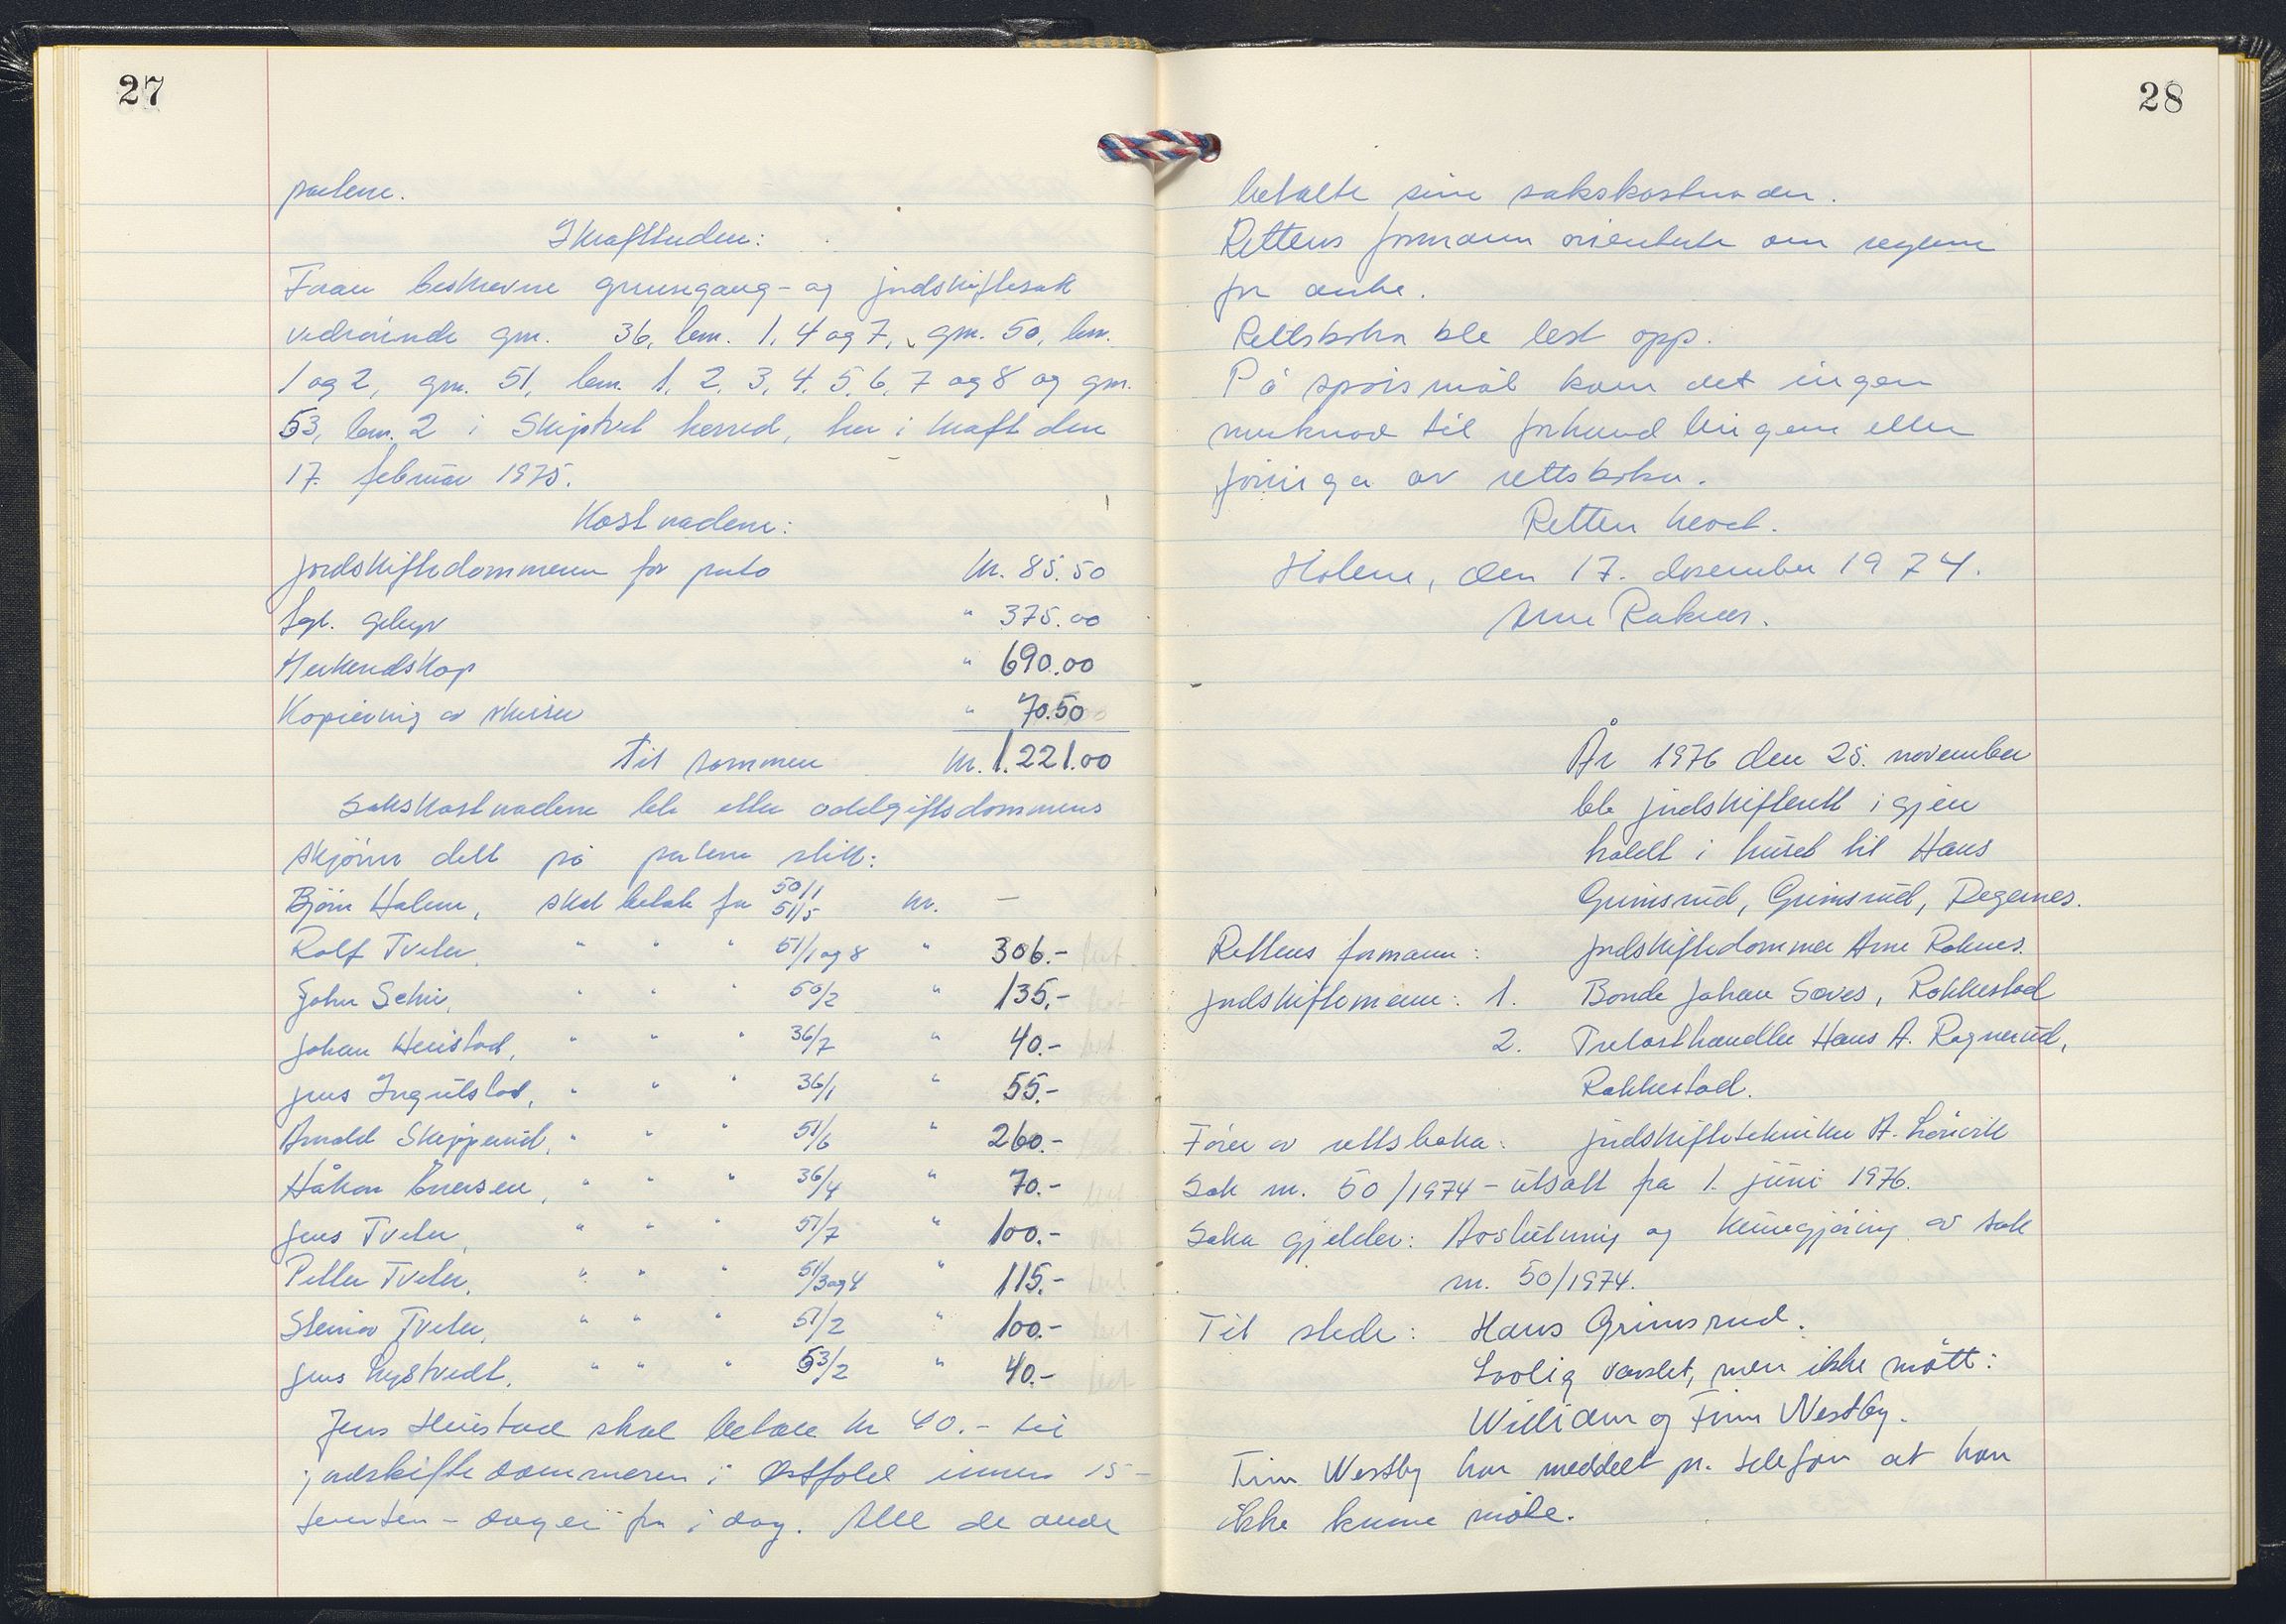 27
partene.
Ikrafttreden:
Foran beskrevne grensegang- og jordskiftesak
vedrørende gnr. 36, bnr. 1, 4 og 7, gnr. 50, bnr.
1 og 2, gnr. 51, bnr. 1, 2, 3, 4, 5, 6, 7 og 8 og gnr.
53, bnr. 2 i Skiptvet herred, trer i kraft den
17. februar 1975.
Kostnadene:
Jordskiftedommeren for porto kr. 85.50
Tgl. gebyr " 375.00
Merkeredskap " 690.00
Kopiering av skisser " 70.50
Til sammen kr. 1.221.00
Sakskostnadene ble etter oddelgiftsdommens
skjønn delt på partene slik:
Bjørn Holene, skal betale for 50/1 51/5 kr. —
Rolf Tveter, " " " 51/1 og 8 " 306.-
John Schie, " " " 50/2 " 135.-
Johan Heistad, " " " 36/7 " 40.-
Jens Ingulstad, " " " 36/1 " 55.-
Arnold Skipperud, " " " 51/6 " 260.-
Håkon Enersen, " " " 36/4 " 70.-
Jens Tveter, " " " 51/7 " 100.-
Petter Tveter, " " " 51/3 og 4 " 115.-
Steinar Tveter, " " " 51/2 " 100.-
Jens Lystvedt, " " " 53/2 " 40.-
Jens Heistad skal betale kr 40.- til
jordskiftedommeren i Østfold innen 15-
femten - dager fra i dag. Alle de andre
28
betalte sine sakskostnader.
Rettens formann orienterte om reglene
for anke.
Rettsboka ble lest opp.
På spørsmål kom det ingen
merknad til forhandlingene eller
føringa av rettsboka.
Retten hevet.
Holene, den 17. desember 1974.
Arne Raknes.
År 1976 den 25. november
ble jordskifterett igjen
holdt i huset til Hans
Grimsrud, Grimsrud, Degernes.
Rettens formann: Jordskiftedommer Arne Raknes.
Jordskiftemenn: 1. Bonde Johan Sæves, Rakkestad
2. Trelasthandler Hans A. Ragnerud,
Rakkestad.
Fører av rettsboka: Jordskiftetekniker A. Lövvik
Sak nr. 50/1974 - utsatt fra 1. juni 1976.
Saka gjelder: Avslutning og kunngjøring av sak
nr. 50/1974.
Til stede: Hans Grimsrud.
Lovlig varslet, men ikke møtt:
William og Finn Westby.
Finn Westby har meddelt pr. telefon at han
ikke kunne møte.